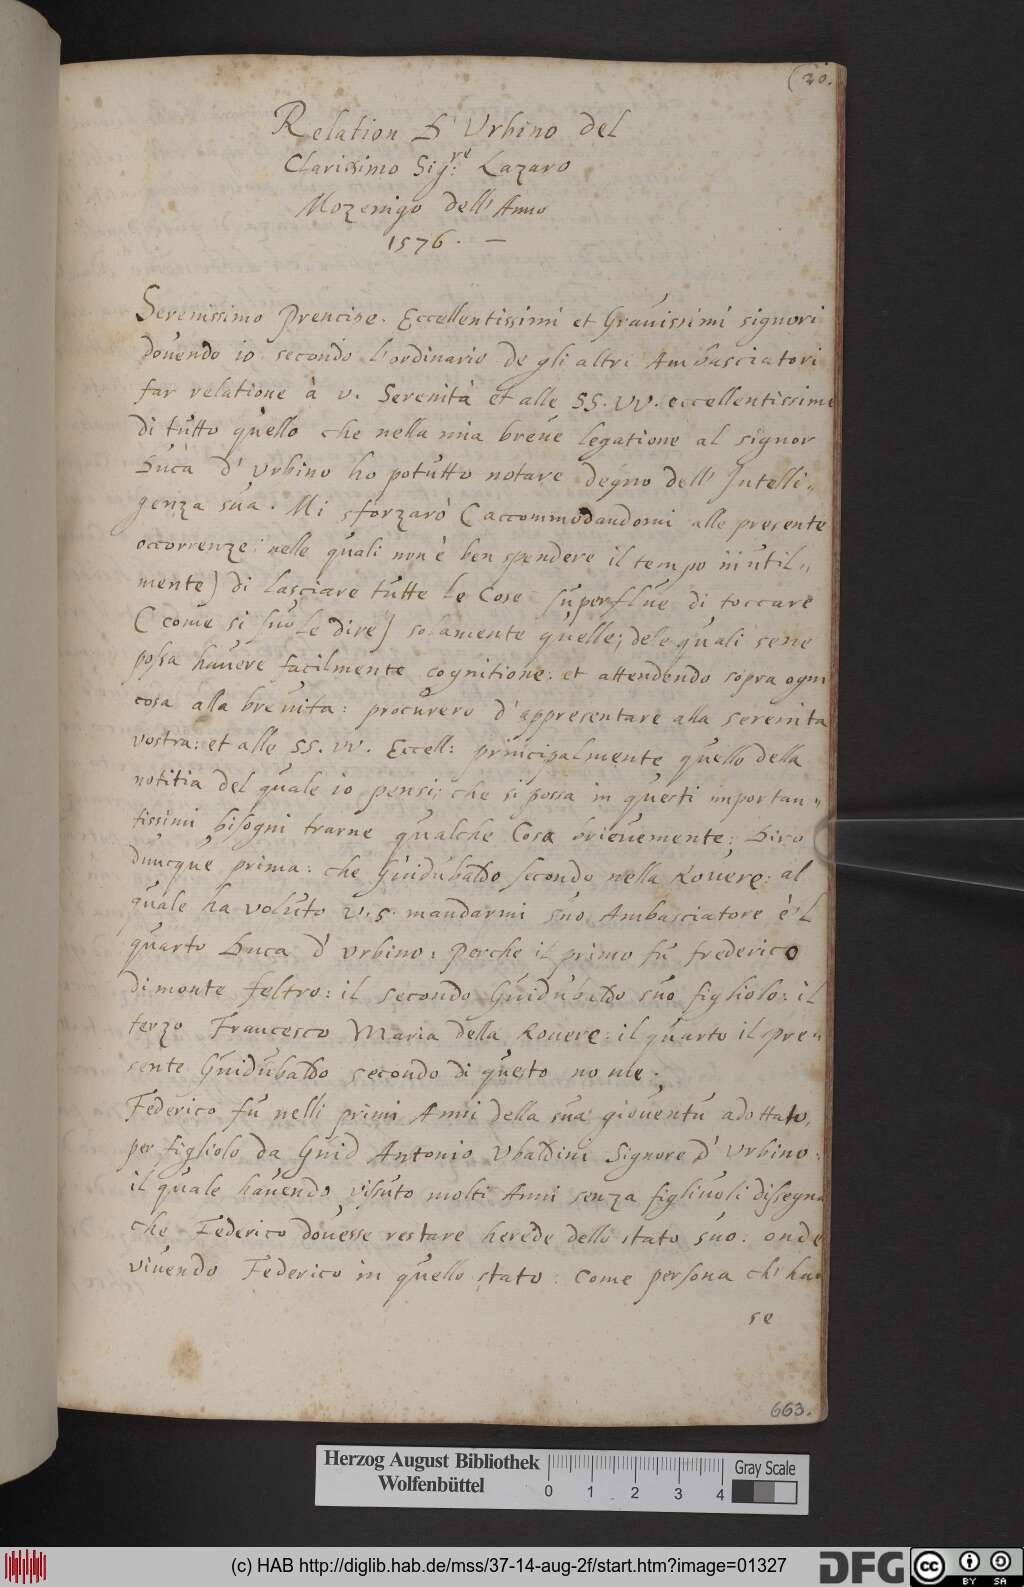 (20.
Relation D' Urbino del
Clarissimo Sig:re Lazaro
Mozenigo dell' Anno
1576. —
Serenissimo Prencipe. Eccellentissimi et Grauissimi signori
douendo io secondo l'ordinario de gli altri Ambasciatori
far relatione à v. Serenità et alle SS. VV. eccellentissime
di tutto quello che nella mia breue legatione al signor
Duca d' Urbino ho potutto notare degno dell' Intelli-
genza sua. Mi sforzarò (accommodandomi alle presente
occorrenze: nelle quali non è ben spendere il tempo inutil-
mente) di lasciare tutte le Cose superflue di toccare
(come si suole dire) solamente quelle; dele quali sene
possa hauere facilmente cognitione: et attendendo sopra ogni
cosa alla breuita: procurero d' appresentare alla serenita
vostra: et alle SS. VV. Eccell: principalmente quello della
notitia del quale io pensi; che si possa in questi importan-
tissimi bisogni trarne qualche Cosa brieuemente: Diro
duncque prima: che Guidubaldo secondo nella Rouere: al
quale ha voluto V.S. mandarmi suo Ambasciatore è 'l
quarto Duca d' Urbino: Perche il primo fu frederico
di monte feltro: il secondo Guidubaldo suo figliolo: il
terzo Francesco Maria della Rouere: il quarto il pre-
sente Guidubaldo secondo di questo nome.
Federico fu nelli primi Anni della sua giouentu adottato,
per figliolo da Guid Antonio Ubaldini Signore d' Urbino:
il quale hauendo vissuto molti Anni senza figliuoli dissegna
che Federico douesse restare herede dello stato suo: onde
viuendo Federico in quello stato: come persona ch' hau
se
663.
Herzog August Bibliothek
Wolfenbüttel
0 1 2 3 4
Gray Scale
(c) HAB http://diglib.hab.de/mss/37-14-aug-2f/start.htm?image=01327
DFG
cc BY SA